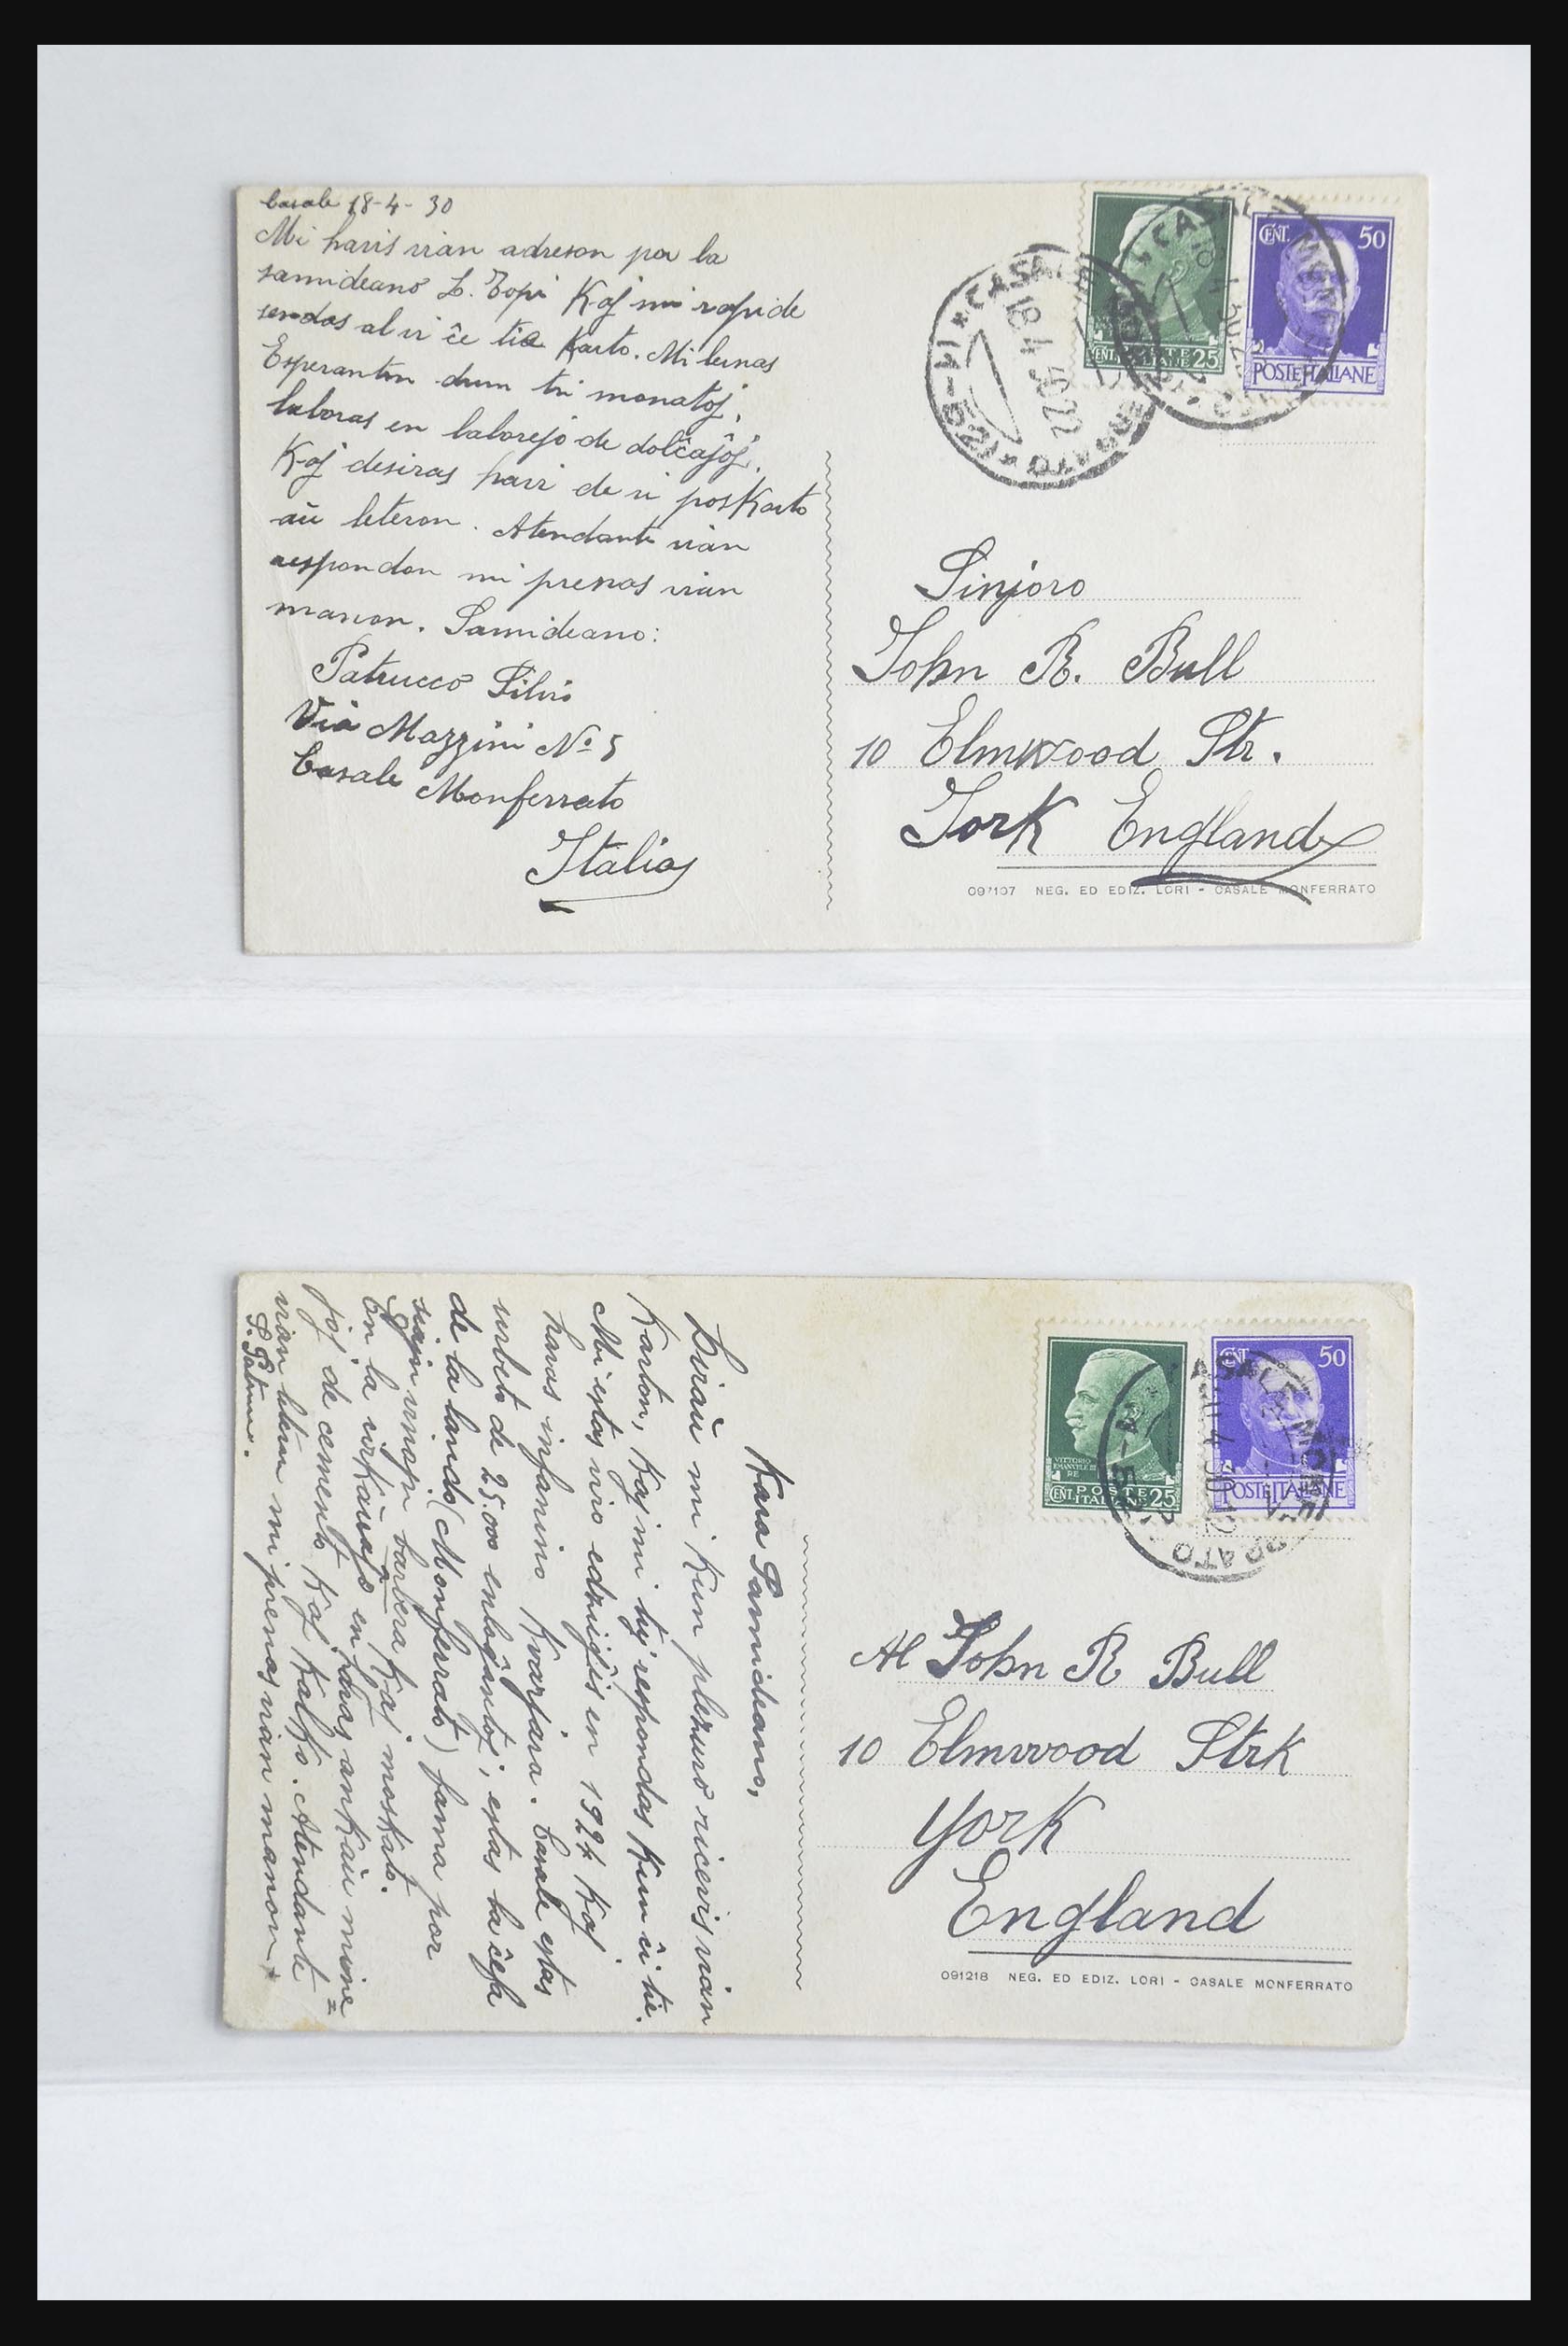 Casale 18-4-30
Mi havis vian adreson por la
samideano Z. Topi Kaj mi rapide
sendas al vi ĉe tia Karto. Mi lernas
Esperanton dum tri monatoj,
laboras en laborejo de dolĉaĵoj.
Kaj desiras havi de vi posKarto
aŭ leteron. Atendante vian
respondon mi prenas vian
manon. Samideano:
Patrucco Silvio
Via Mazzini Nº 5
Casale Monferrato
Italio
CENT. POSTE ITALIANE 25
CENT. 50
POSTE ITALIANE
CASALE MONFERRATO
18.4.30.22
Sinjoro
John R. Bull
10 Elmwood Str.
York England
097107 NEG. ED EDIZ. LORI - CASALE MONFERRATO
Kara Samideano,
mi Kun plezuro ricevis vian
Karton, Kaj mi tuj respondas Kun ĉi tie.
Mi estas viro edziĝis en 1924 Kaj
havas infanino Kvarjara. Casale estas
urbeto de 25.000 enloĝantoj, estas la ĉefa
de la lando (Monferrato) fama por
siajn vinojn barbera Kaj moskato.
En la ĉirkaŭaĵo en havas ankaŭ mine=
joj de cemento Kaj Kalko. Atendante
vian leteron mi prenas vian manon
VITTORIO EMANUELE III RE
CENT. POSTE ITALIANE 25
CENT. 50
POSTE ITALIANE
CASALE MONFERRATO
Al John R Bull
10 Elmwood Strk
York
England
091218 NEG. ED EDIZ. LORI - CASALE MONFERRATO